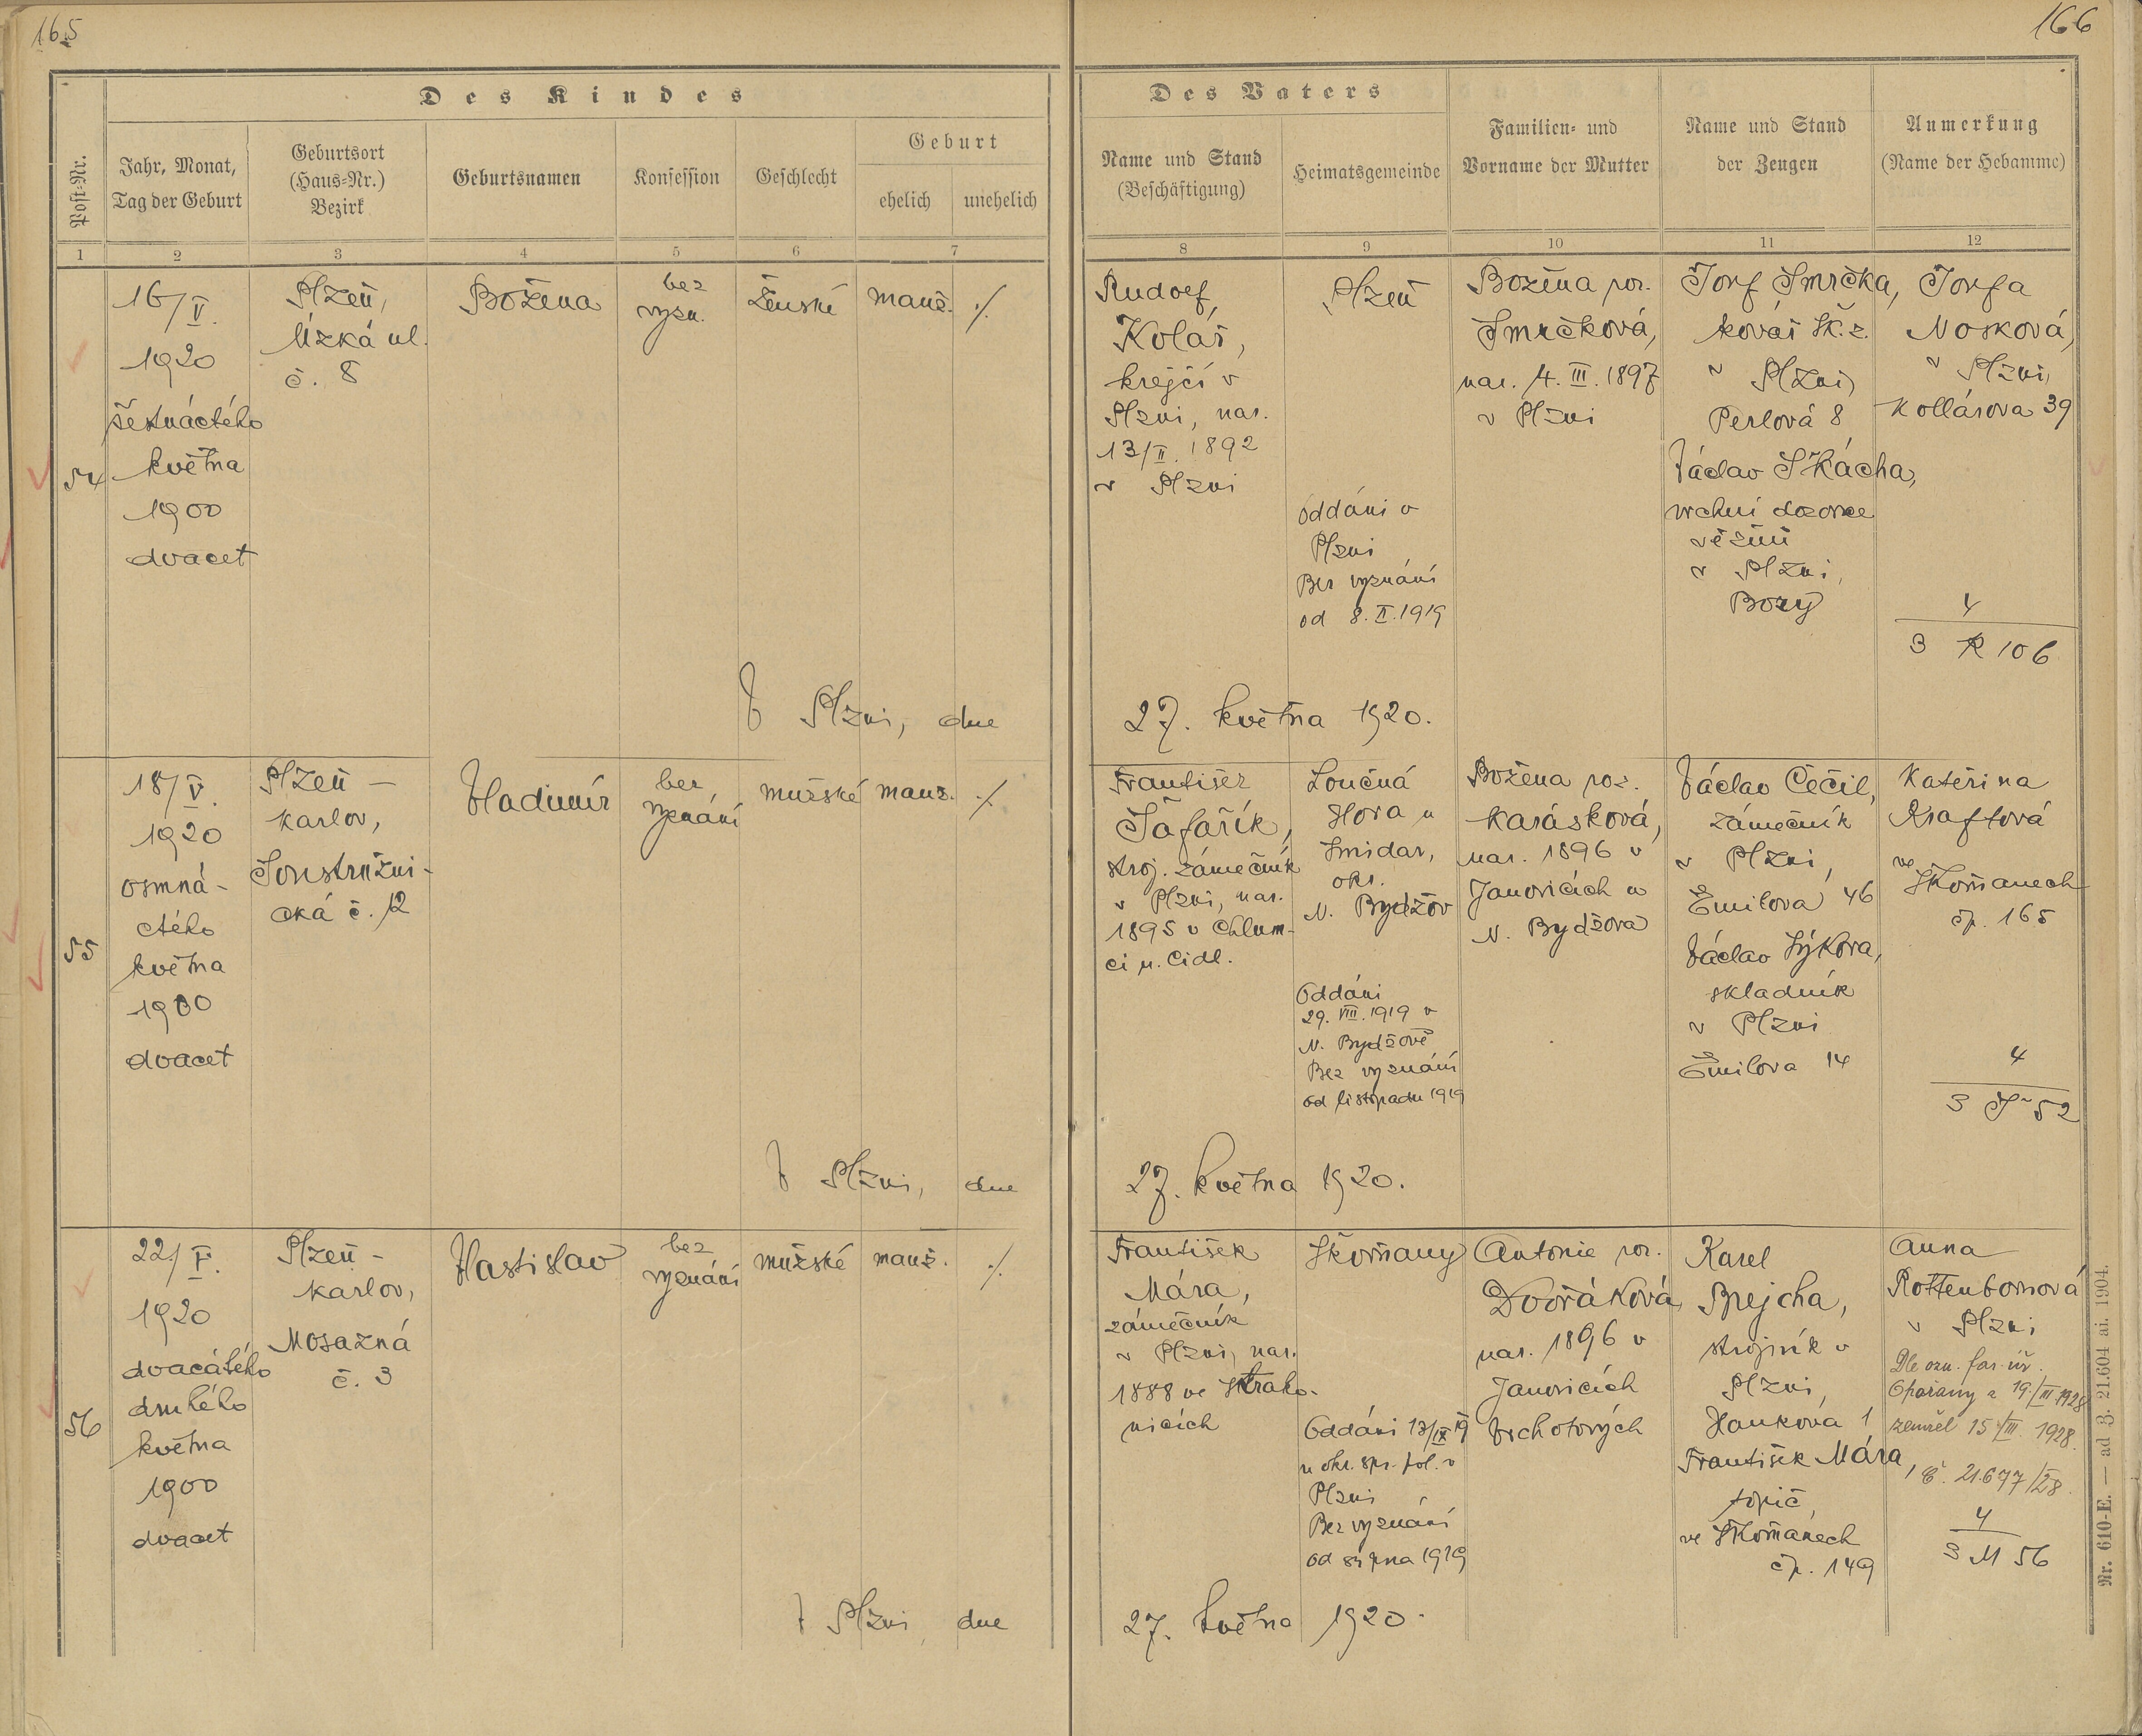 165
166
Des Kindes
Post-Nr.
Jahr, Monat,
Tag der Geburt
Geburtsort
(Haus-Nr.)
Bezirk
Geburtsnamen
Konfession
Geschlecht
Geburt
ehelich
unehelich
Des Vaters
Name und Stand
(Beschäftigung)
Heimatsgemeinde
Familien- und
Vorname der Mutter
Name und Stand
der Zeugen
Anmerkung
(Name der Hebamme)
1 2 3 4 5 6 7 8 9 10 11 12
54
16/V.
1920
šestnáctého
května
1900
dvacet
Plzeň,
Úzká ul.
č. 8
Božena
bez
vyzn.
ženské
manž.
./.
Rudolf
Kolář,
krejčí v
Plzni, nar.
13/II. 1892
v Plzni
Plzeň
Oddáni v
Plzni
Bez vyznání
od 8. II. 1919
Božena roz.
Smrčková,
nar. 4. III. 1897
v Plzni
Josef Smrčka,
kovář Šk. z.
v Plzni,
Perlová 8
Václav Škácha,
vrchní dozorce
věznií
v Plzni,
Bory
Josefa
Nosková,
v Plzni,
Kollárova 39
4
3 K 106
V Plzni, dne
27. května 1920.
55
18/V.
1920
osmná-
ctého
května
1900
dvacet
Plzeň –
Karlov,
Soustružni-
cká č. 12
Vladimír
bez
vyznání
mužské
manž.
./.
František
Šafařík,
stroj. zámečník
v Plzni, nar.
1895 v Chlum-
ci n. Cidl.
Loučná
Hora u
Smidar,
okr.
N. Bydžov
Oddáni
29. VIII. 1919 v
N. Bydžově
Bez vyznání
od listopadu 1919
Božena roz.
Karásková,
nar. 1896 v
Janovicích u
N. Bydžova
Václav Čečil,
zámečník
v Plzni,
Emilova 46
Václav Sýkora,
skladník
v Plzni
Emilova 14
Kateřina
Kraftová
ve
Skvrňanech
čp. 165
4
3 Š 52
V Plzni, dne
27. května 1920.
56
22/V.
1920
dvacátého
druhého
května
1900
dvacet
Plzeň –
Karlov,
Mosazná
č. 3
Vlastislav
bez
vyznání
mužské
manž.
./.
František
Mára,
zámečník
v Plzni, nar.
1888 ve Strako-
nicích
Skvrňany
Oddáni 13/IX 19
u okr. spr. pol. v
Plzni
Bez vyznání
od srpna 1919
Antonie roz.
Dvořáková
nar. 1896 v
Janovicích
Vrchotových
Karel
Brejcha,
strojník v
Plzni,
Hankova 1
František Mára,
topič,
ve Skvrňanech
čp. 149
Anna
Rottenbornová
v Plzni
Dle ozn. far. úř.
Opařany z 19./III. 1928
zemřel 15./III. 1928.
č. 21.677/28.
4
3 M 56
V Plzni, dne
27. května 1920.
Nr. 610-E. — ad Z. 21.604 ai. 1904.